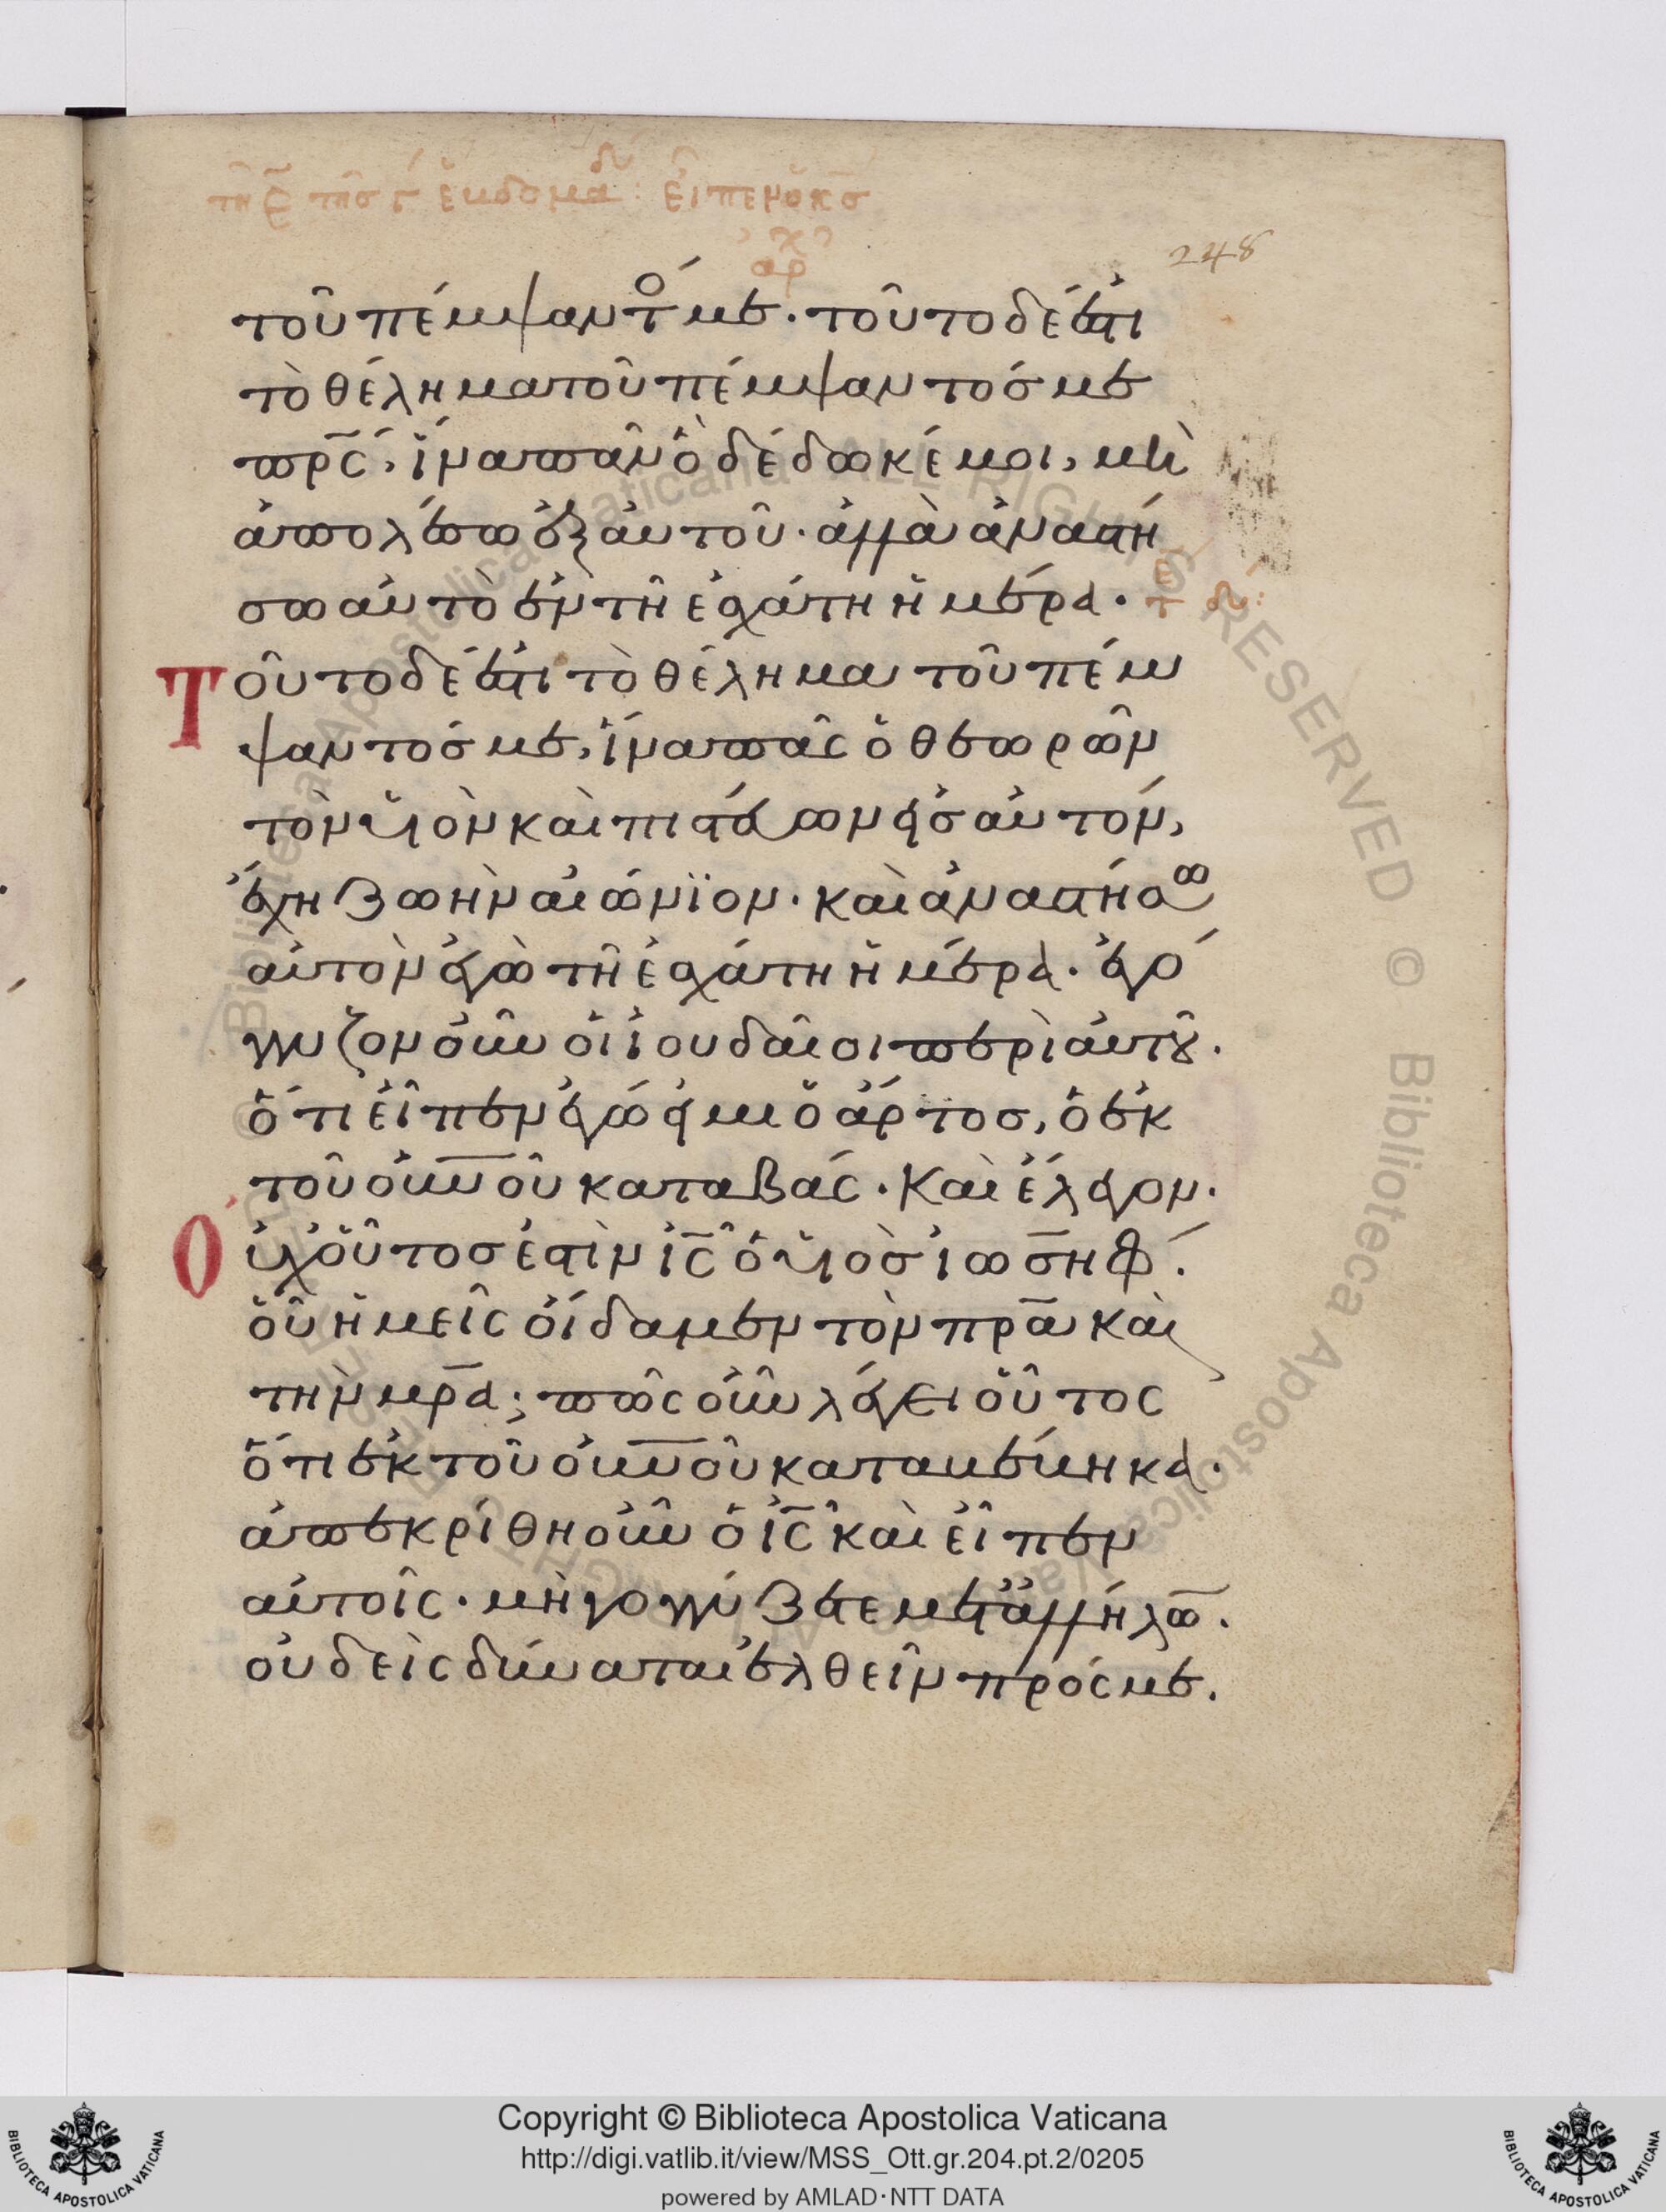 248
τοῦ πέμψαντός με. τοῦτο δέ ἐστι
τὸ θέλημα τοῦ πέμψαντός με
πρ̅ς, ἵνα πᾶν ὃ δέδωκέ μοι, μὴ
ἀπολέσω ἐξ αὐτοῦ. ἀλλὰ ἀναστή
σω αὐτὸ ἐν τῆ ἐσχάτη ἡμέρα.
Τοῦτο δέ ἐστι τὸ θέλημα τοῦ πέμ
ψαντός με, ἵνα πᾶς ὁ θεωρῶν
τὸν υἱὸν καὶ πιστεύων εἰς αὐτόν,
ἔχη ζωὴν αἰώνϊον. καὶ ἀναστήσω
αὐτὸν ἐγὼ τῆ ἐσχάτη ἡμέρα. ἐγό
γγυζον οὖν οἱ ἰουδαῖοι περὶ αὐτοῦ.
ὅτι εἶπεν ἐγώ εἰμι ὁ ἄρτος, ὁ ἐκ
τοῦ οὐ̅νοῦ καταβάς. Καὶ ἔλεγον.
Οὐχ οὗτος ἐστὶν ἰ̅ς ὁ υἱὸς ἰωσήφ.
οὗ ἡμεῖς οἴδαμεν τὸν πρ̅α καὶ
τὴν μρ̅α; πῶς οὖν λέγει οὗτος
ὅτι ἐκ τοῦ οὐ̅νοῦ καταβέβηκα.
ἀπεκρίθη οὖν ὁ ἰ̅ς καὶ εἶπεν
αὐτοῖς. μὴ γογγύζετε μετ' ἀλλήλω̅.
οὐδεὶς δύναται ἐλθεῖν πρός με.
Copyright © Biblioteca Apostolica Vaticana
http://digi.vatlib.it/view/MSS_Ott.gr.204.pt.2/0205
powered by AMLAD·NTT DATA
BIBLIOTECA APOSTOLICA VATICANA
BIBLIOTECA APOSTOLICA VATICANA